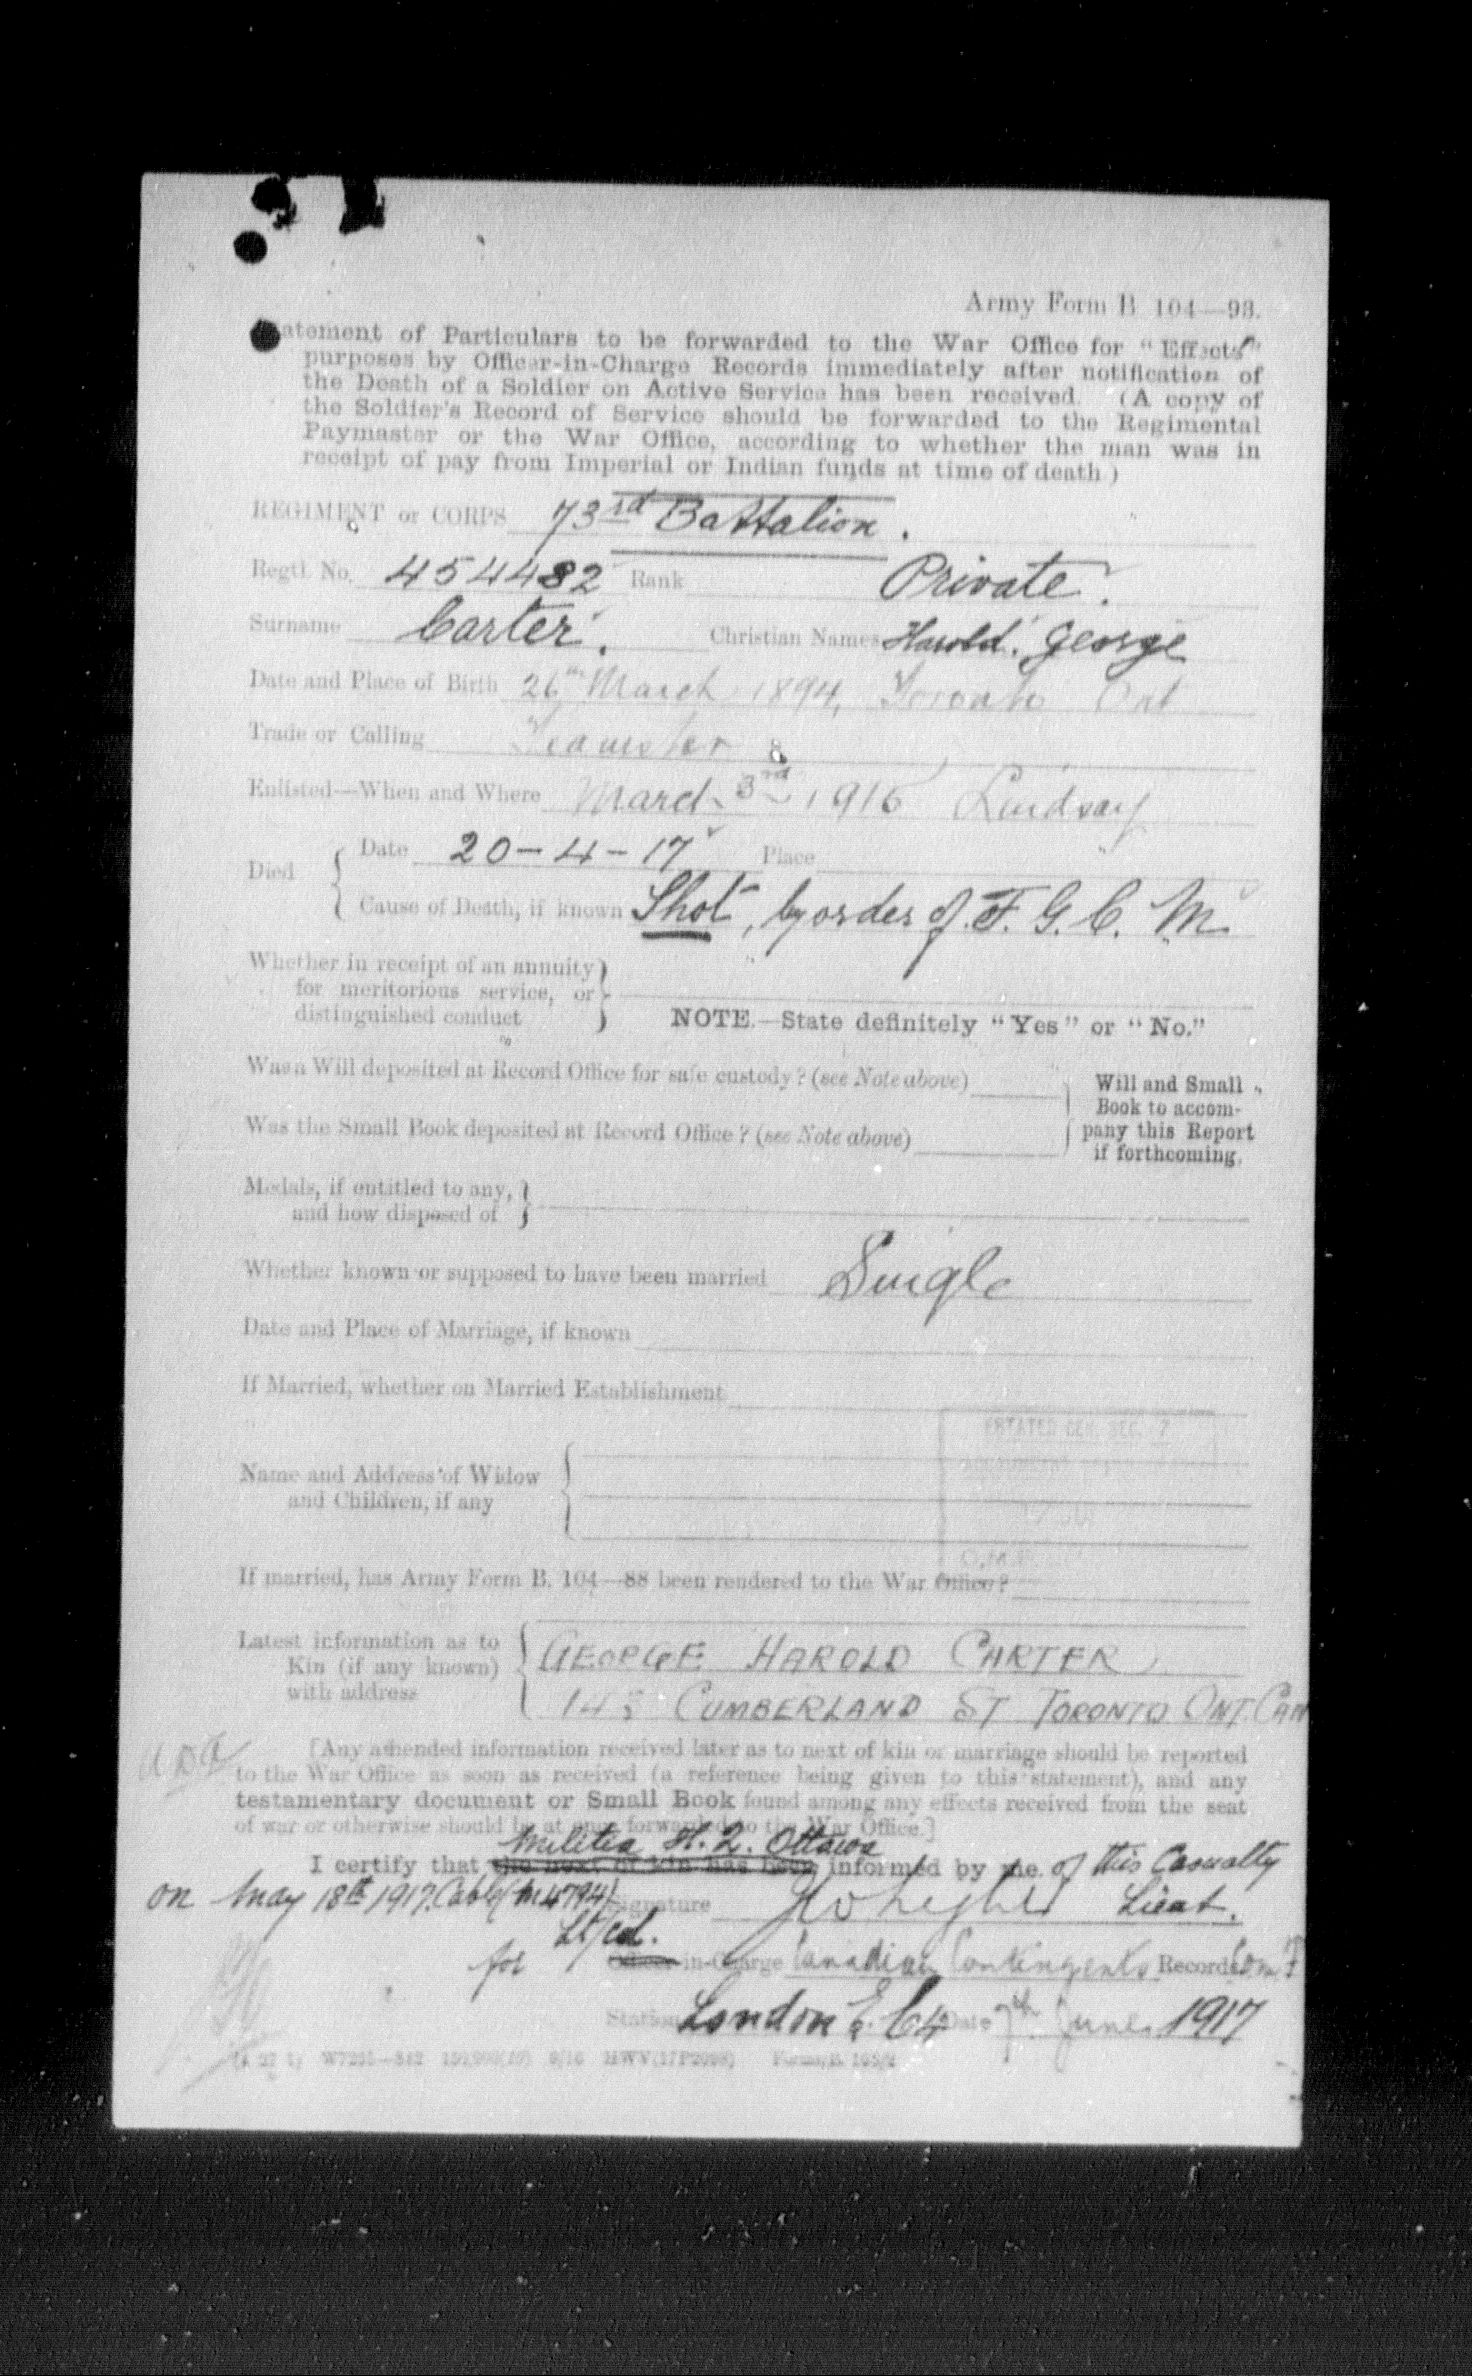 Army Form B 104—93.
atement of Particulars to be forwarded to the War Office for "Effects"
purposes by Officer-in-Charge Records immediately after notification of
the Death of a Soldier on Active Service has been received. (A copy of
the Soldier's Record of Service should be forwarded to the Regimental
Paymaster or the War Office, according to whether the man was in
receipt of pay from Imperial or Indian funds at time of death)
REGIMENT or CORPS 73rd Battalion.
Regtl. No. 454482 Rank Private.
Surname Carter. Christian Names Harold. George
Date and Place of Birth 26th March 1894, Toronto Ont
Trade or Calling Teamster
Enlisted—When and Where March 3rd 1916 Lindsay
Died { Date 20-4-17 Place
Cause of Death, if known Shot, by order of F. G. C. M
Whether in receipt of an annuity
for meritorious service, or
distinguished conduct
NOTE.—State definitely "Yes" or "No."
Was a Will deposited at Record Office for safe custody? (see Note above)
Was the Small Book deposited at Record Office? (see Note above)
Will and Small
Book to accom-
pany this Report
if forthcoming.
Medals, if entitled to any,
and how disposed of
Whether known or supposed to have been married Single
Date and Place of Marriage, if known
If Married, whether on Married Establishment
ESTATES GEN. SEC. 7
Name and Address of Widow
and Children, if any
If married, has Army Form B. 104—88 been rendered to the War Office?
Latest information as to
Kin (if any known)
with address
GEORGE HAROLD CARTER
145 CUMBERLAND ST TORONTO ONT. CAN
[Any amended information received later as to next of kin or marriage should be reported
to the War Office as soon as received (a reference being given to this statement), and any
testamentary document or Small Book found among any effects received from the seat
of war or otherwise should be at once forwarded to the War Office.]
Militia H. Q. Ottawa
I certify that the next of kin has been informed by me of this Casualty
on May 18th 1917. Cable (M4794) Signature Lieut.
for Lt/Col.
Officer in-Charge Canadian Contingents Records
Station London E. C4 Date 7th June 1917